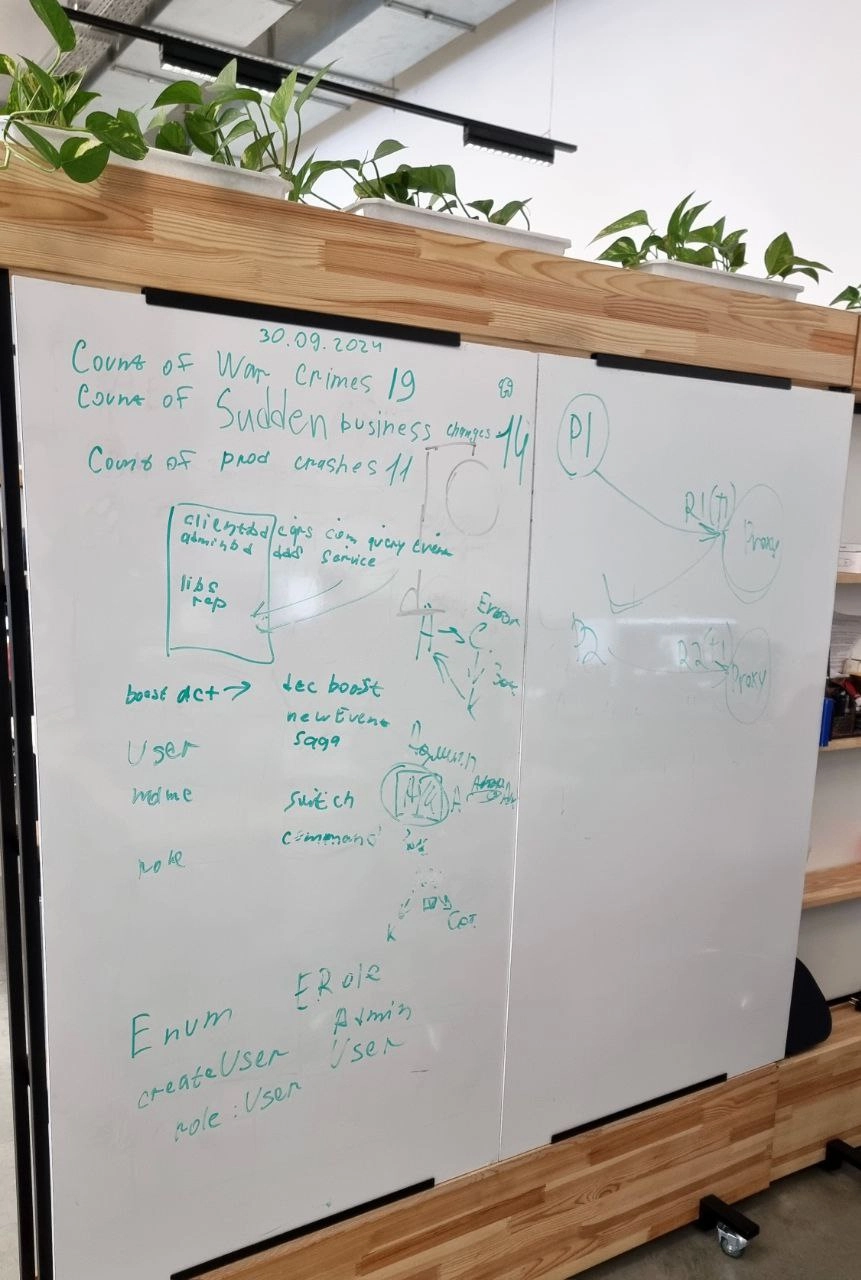 30.09.2024
Count of War crimes 19
Count of Sudden business changes 14
Count of prod crashes 11
clientbd
adminbd
cqrs com query event
ddd service
libs
rep
A
C
Error
K
boost act → dec boost
newEvent
saga
User
name
switch
command
role
A
K
Enum ERole
Admin
User
createUser
role: User
P1
R1(
Proxy
P2
R2(
Proxy